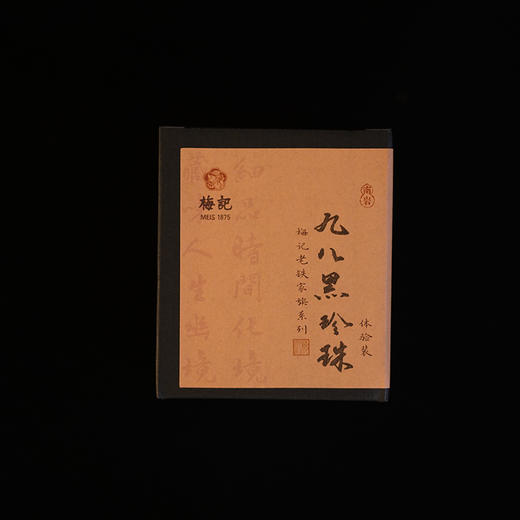 梅記
MEIS 1875
南岩
九八黑珍珠
梅记老铁家族系列
体验装
細品時間化境
藏人生幽境